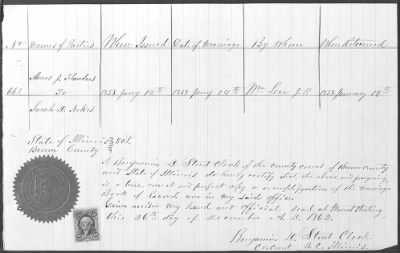 No Names of Parties When Issued Date of Marriage By Whom When Returned
Amos J. Flanders
661 To 1858 Jany 10th 1858 Jany 14th Wm Lee J. P. 1858 January 19th
Sarah
State of Illinois
Brown County Sct.
I Benjamin Stout Clerk of the county court of Brown county
and State of Illinois do hereby certify that the above and foregoing
is a true correct and perfect copy & exemplification of the marriage
Book of Record now in my said office.
Given under my hand and official seal at Mount Sterling
this 26th day of December A. D. 1862.
Benjamin Stout Clerk
Co Court B. C. Illinois